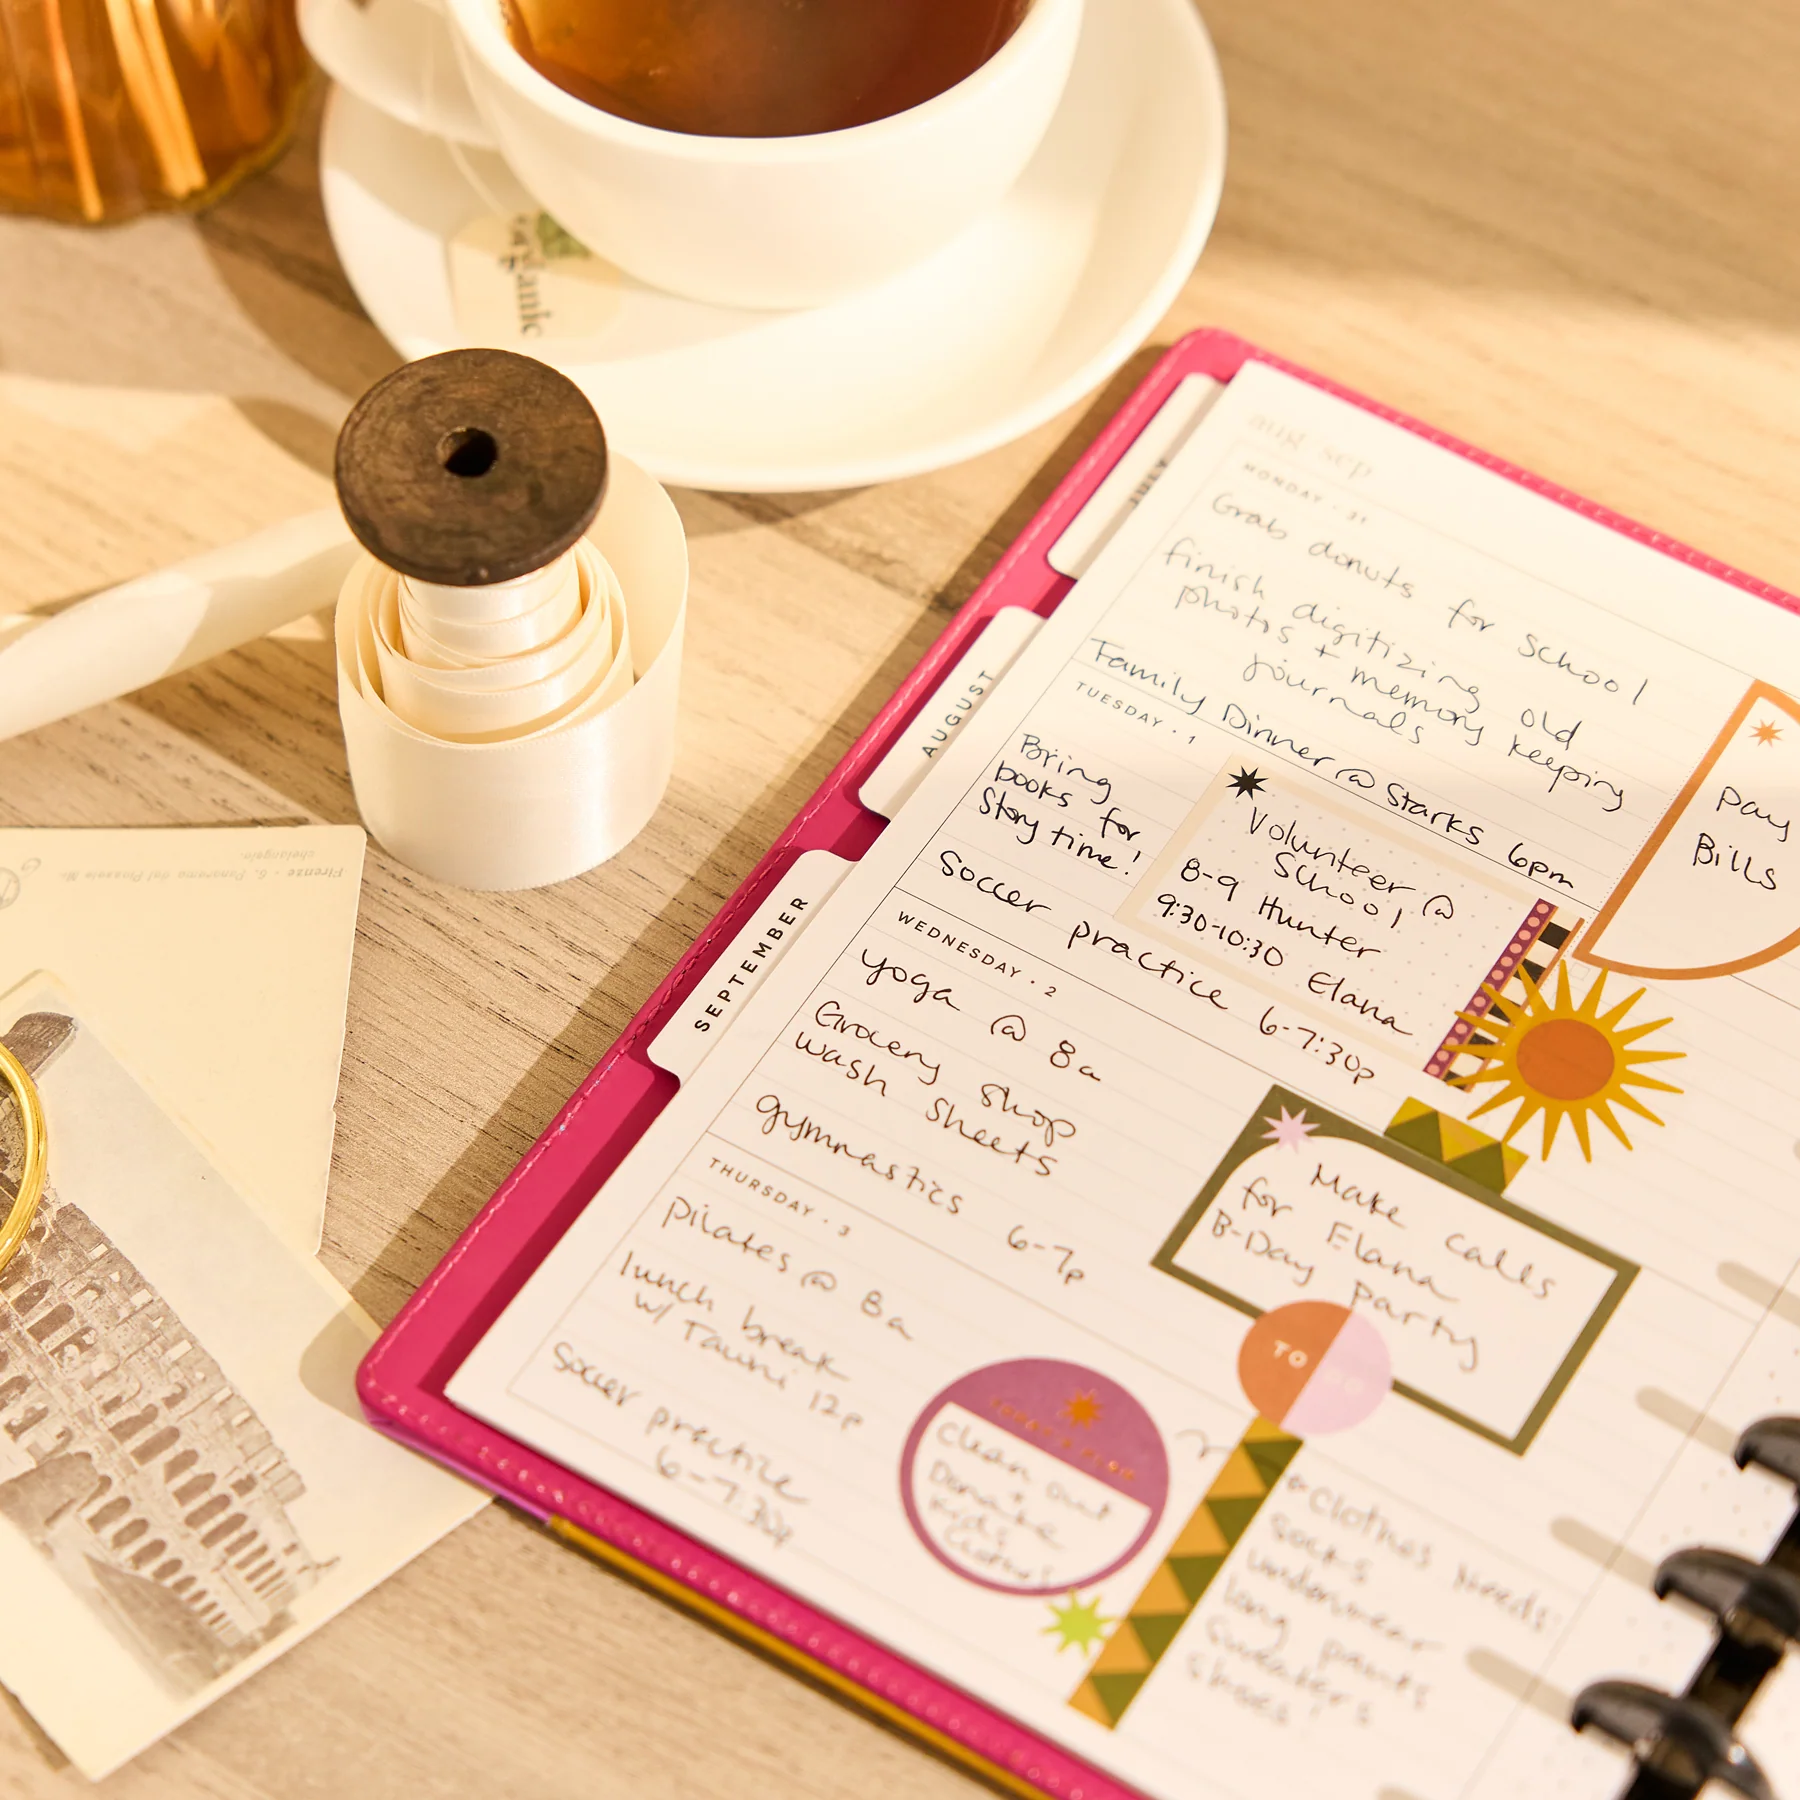 organic
JULY
AUGUST
SEPTEMBER
Firenze - 6. Panorama dal Piazzale Mi-
chelangelo.
aug sep
MONDAY · 31
Grab donuts for School
finish digitizing old
photos + memory keeping
journals
Family Dinner @ Starks 6pm
Pay
Bills
TUESDAY · 1
Bring
books for
Story time!
Volunteer @
School
8-9 Hunter
9:30-10:30 Elana
Soccer practice 6-7:30p
WEDNESDAY · 2
yoga @ 8a
Grocery Shop
wash sheets
gymnastics 6-7p
Make calls
for Elana
B-Day party
TO DO
THURSDAY · 3
Pilates @ 8a
lunch break
w/ Tawni 12p
Soccer practice
6-7:30p
TODAY'S PLAN
Clean out
+
Donate
Kids
Clothes
Clothes Needs:
socks
underwear
long pants
sweaters
shoes!